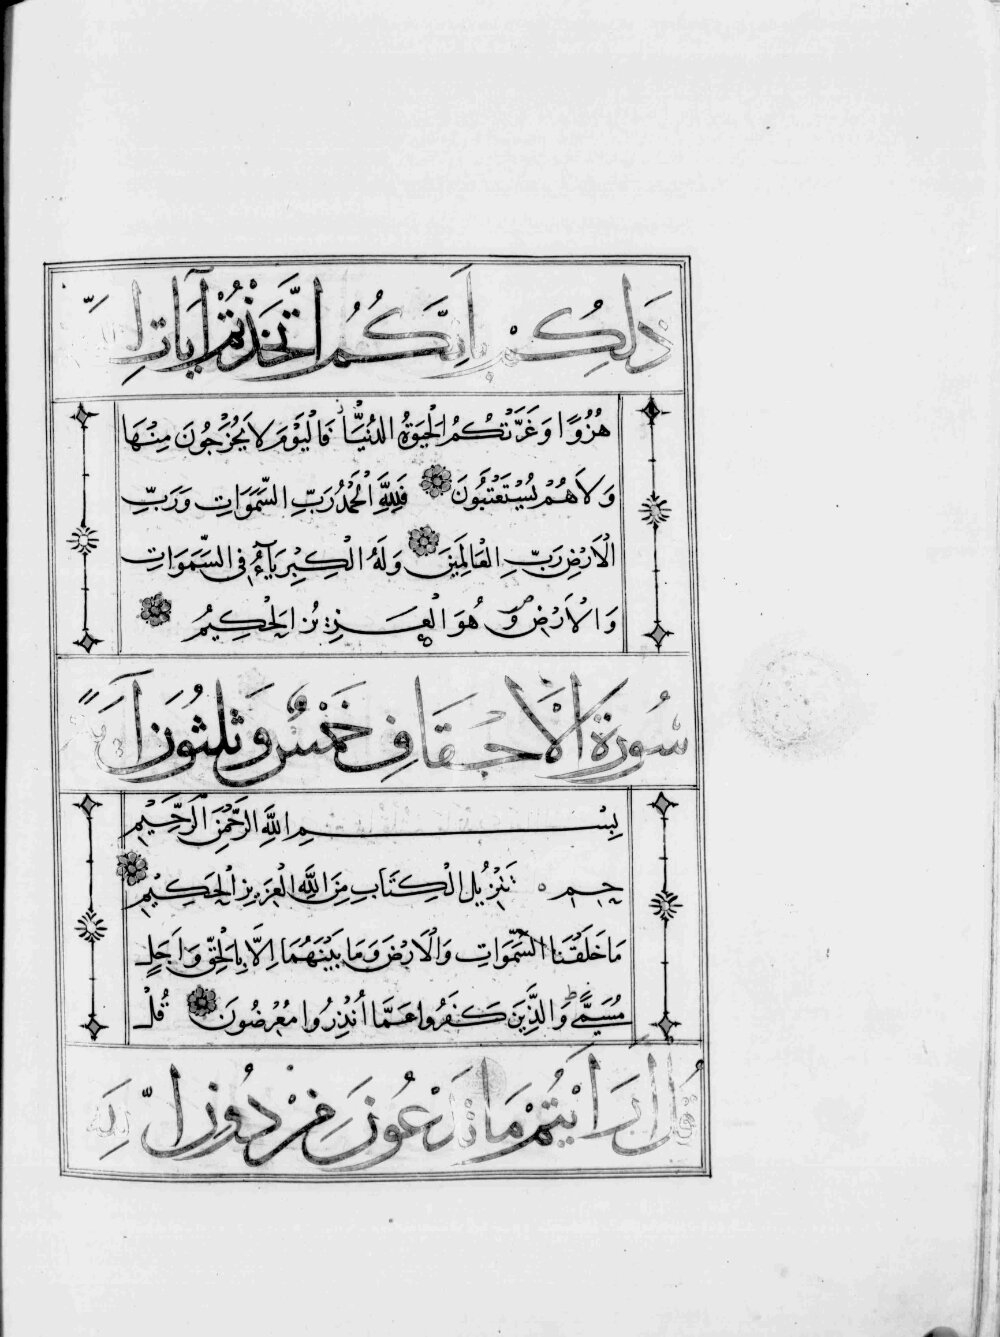 ذَلِكُمْ بِاَنَّكُمُ اتَّخَذْتُمْ آيَاتِ اللّٰهِ
هُزُوًا وَغَرَّتْكُمُ الْحَيٰوةُ الدُّنْيَا فَالْيَوْمَ لَا يُخْرَجُونَ مِنْهَا
وَلَا هُمْ يُسْتَعْتَبُونَ فَلِلّٰهِ الْحَمْدُ رَبِّ السَّمَوَاتِ وَرَبِّ
الْاَرْضِ رَبِّ الْعَالَمِينَ وَلَهُ الْكِبْرِيَآءُ فِى السَّمَوَاتِ
وَالْاَرْضِ وَهُوَ الْعَزِيزُ الْحَكِيمُ
سُورَةُ الْاَحْقَافِ خَمْسٌ وَثَلٰثُونَ آ
بِسْمِ اللّٰهِ الرَّحْمٰنِ الرَّحِيْمِ
حٰم تَنْزِيْلُ الْكِتَابِ مِنَ اللّٰهِ الْعَزِيزِ الْحَكِيْمِ
مَا خَلَقْنَا السَّمٰوَاتِ وَالْاَرْضَ وَمَا بَيْنَهُمَا اِلَّا بِالْحَقِّ وَاَجَلٍ
مُسَمًّى وَالَّذِينَ كَفَرُوا عَمَّا اُنْذِرُوا مُعْرِضُونَ قُلْ
اَرَاَيْتُمْ مَا تَدْعُونَ مِنْ دُونِ اللّٰهِ